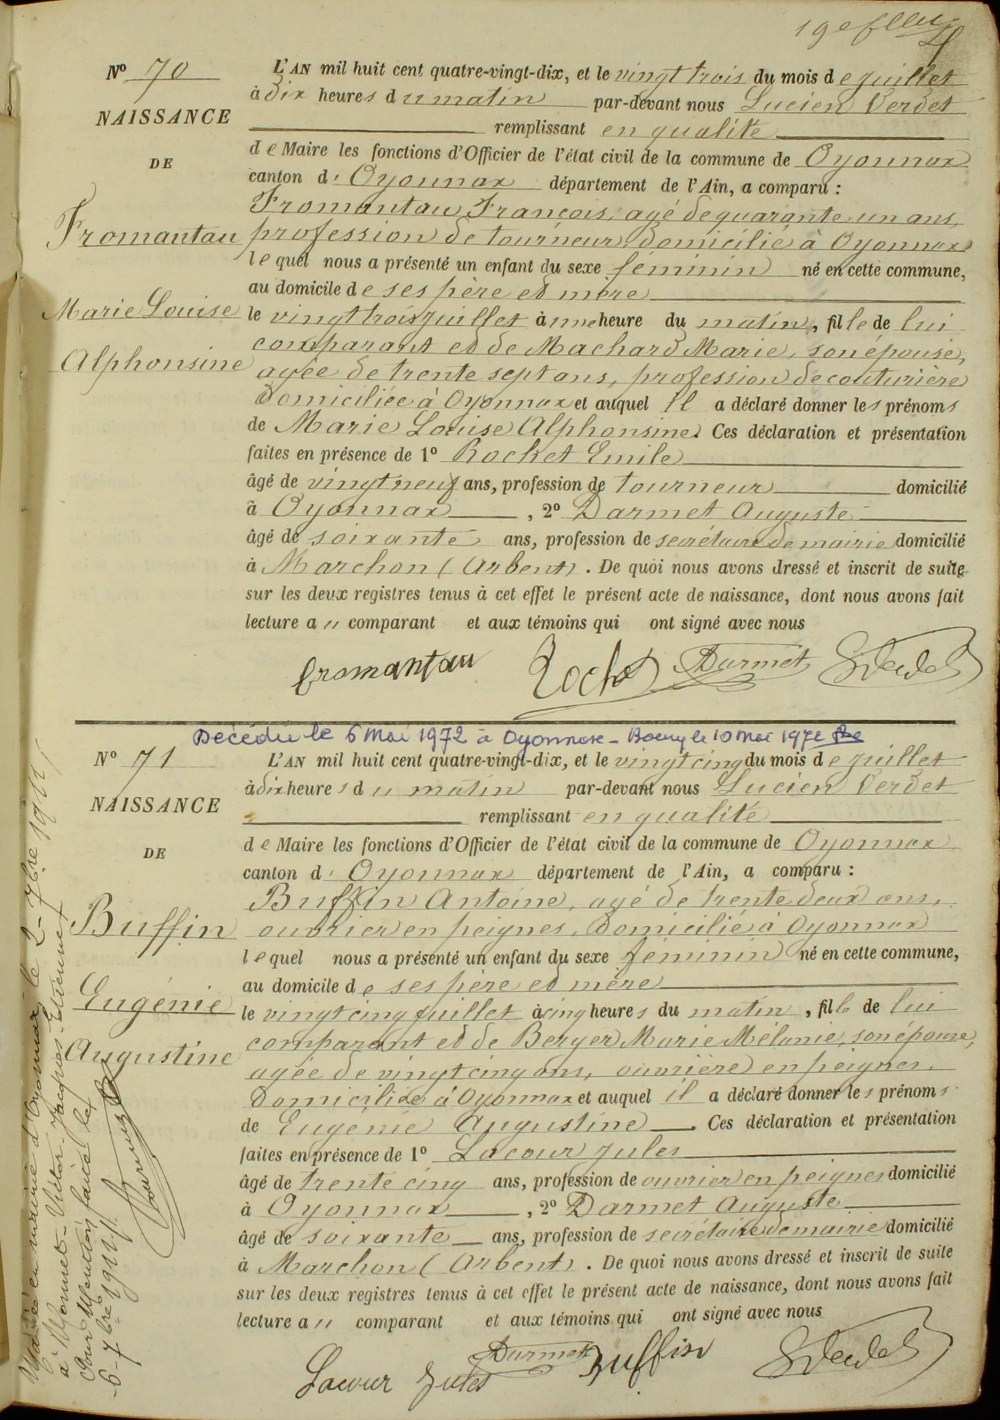 19e flleu
N° 70
NAISSANCE
DE
Fromantau
Marie Louise
Alphonsine
L'AN mil huit cent quatre-vingt-dix, et le vingt trois du mois de juillet
à dix heures du matin par-devant nous Lucien Verdet
remplissant en qualité
de Maire les fonctions d'Officier de l'état civil de la commune de Oyonnax
canton d' Oyonnax département de l'Ain, a comparu :
Fromantau François, agé de quarante un ans,
profession de tourneur domicilié à Oyonnax
lequel nous a présenté un enfant du sexe féminin né en cette commune,
au domicile de ses père et mère
le vingt trois juillet à une heure du matin, fille de lui
comparant et de Machard Marie, son épouse,
agée de trente sept ans, profession de couturière
domiciliée à Oyonnax et auquel il a déclaré donner les prénoms
de Marie Louise Alphonsine. Ces déclaration et présentation
faites en présence de 1° Rochet Emile
âgé de vingt neuf ans, profession de tourneur domicilié
à Oyonnax, 2° Darmet Auguste
âgé de soixante ans, profession de secrétaire de mairie domicilié
à Marchon (Arbent). De quoi nous avons dressé et inscrit de suite
sur les deux registres tenus à cet effet le présent acte de naissance, dont nous avons fait
lecture au comparant et aux témoins qui ont signé avec nous
fromantau Rochet Darmet LVerdet
Décédée le 6 Mai 1972 à Oyonnax - Bourg le 10 Mai 1972
N° 71
NAISSANCE
DE
Buffin
Eugénie
Augustine
L'AN mil huit cent quatre-vingt-dix, et le vingt cinq du mois de juillet
à dix heures du matin par-devant nous Lucien Verdet
remplissant en qualité
de Maire les fonctions d'Officier de l'état civil de la commune de Oyonnax
canton d' Oyonnax département de l'Ain, a comparu :
Buffin Antoine, agé de trente deux ans,
ouvrier en peignes, domicilié à Oyonnax
lequel nous a présenté un enfant du sexe féminin né en cette commune,
au domicile de ses père et mère
le vingt cinq juillet à cinq heures du matin, fille de lui
comparant et de Berger Marie Mélanie, son épouse,
agée de vingt cinq ans, ouvrière en peignes,
domiciliée à Oyonnax et auquel il a déclaré donner les prénoms
de Eugénie Augustine. Ces déclaration et présentation
faites en présence de 1° Lacour Jules
âgé de trente cinq ans, profession de ouvrier en peignes domicilié
à Oyonnax, 2° Darmet Auguste
âgé de soixante ans, profession de secrétaire de mairie domicilié
à Marchon (Arbent). De quoi nous avons dressé et inscrit de suite
sur les deux registres tenus à cet effet le présent acte de naissance, dont nous avons fait
lecture au comparant et aux témoins qui ont signé avec nous
Lacour Jules Darmet Buffin LVerdet
Mariée en mairie d'Oyonnax le 2 - 7bre
à Monnet - Victor Jacques Etiennet
Pour Mention faite le
6 - 7bre